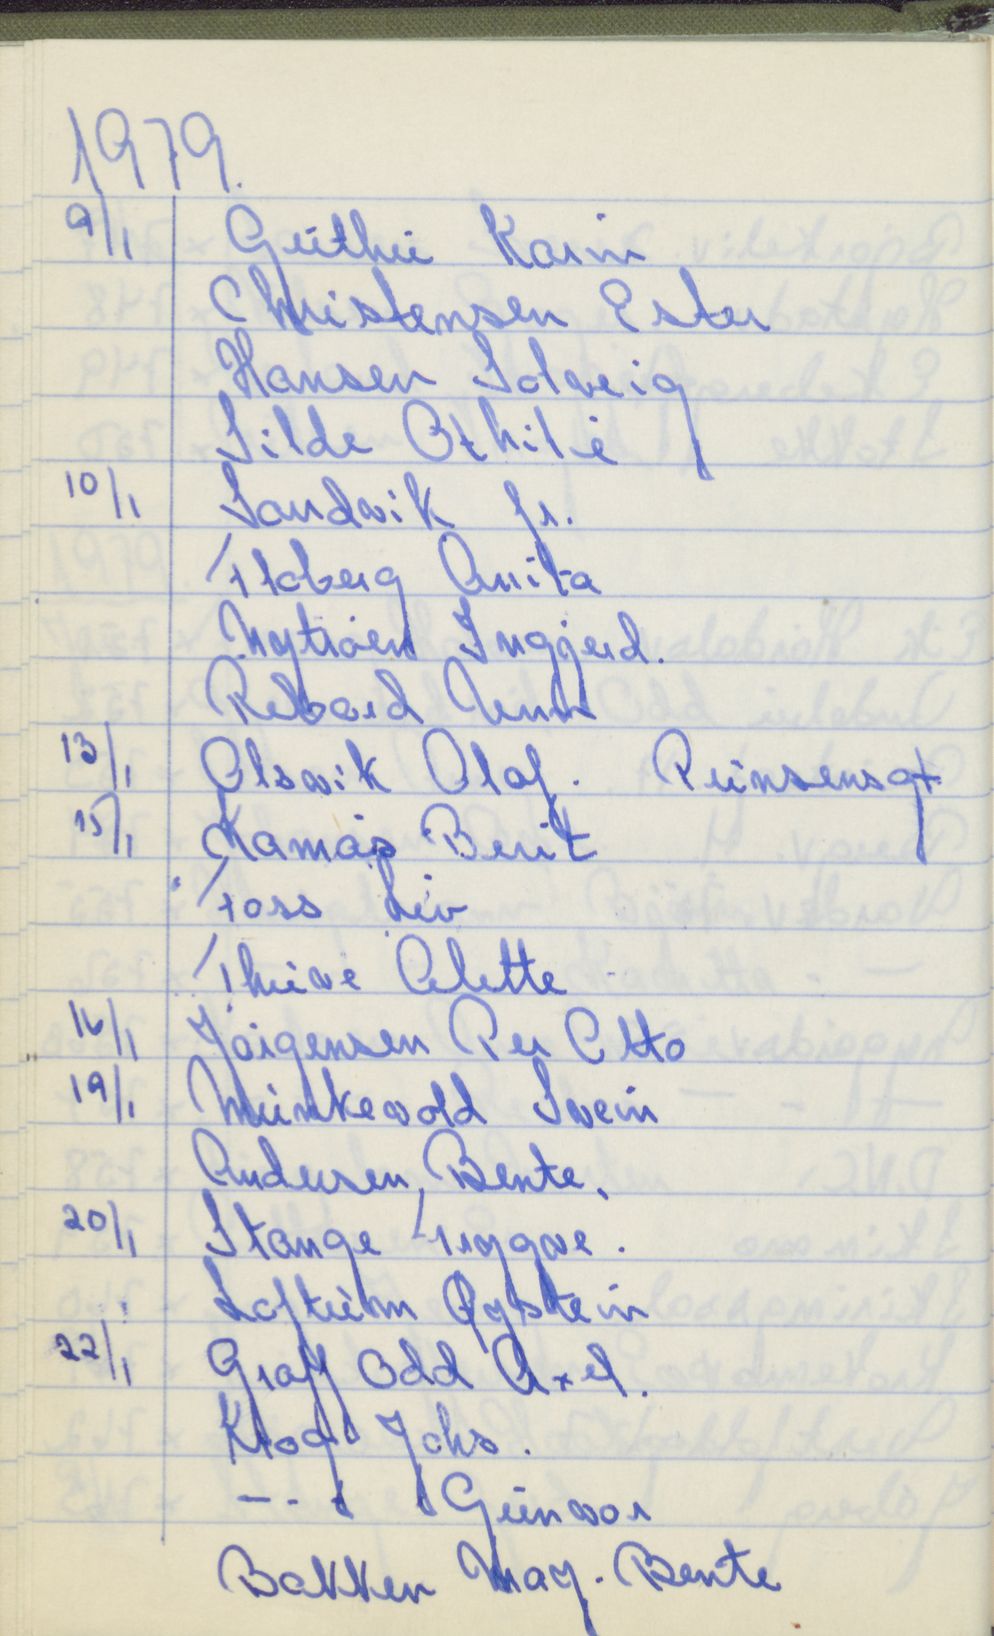 1979.
9/1 Guthu Karin
Christensen Ester
Hansen Solveig
Silde Othilie
10/1 Sandvik fr.
Floberg Anita
Nytrøen Inggjerd.
Rebård Unn
13/1 Olsvik Olaf. Prinsensgt
15/1 Kamøs Berit
Foss Liv
Thiive Alette
16/1 Jørgensen Per Otto
19/1 Munkevold Svein
Andersen, Bente.
20/1 Stange Trygve.
Loftum Øystein
22/1 Graff Odd Axel.
Krog Johs.
--"- Gunvor
Bakken May. Bente